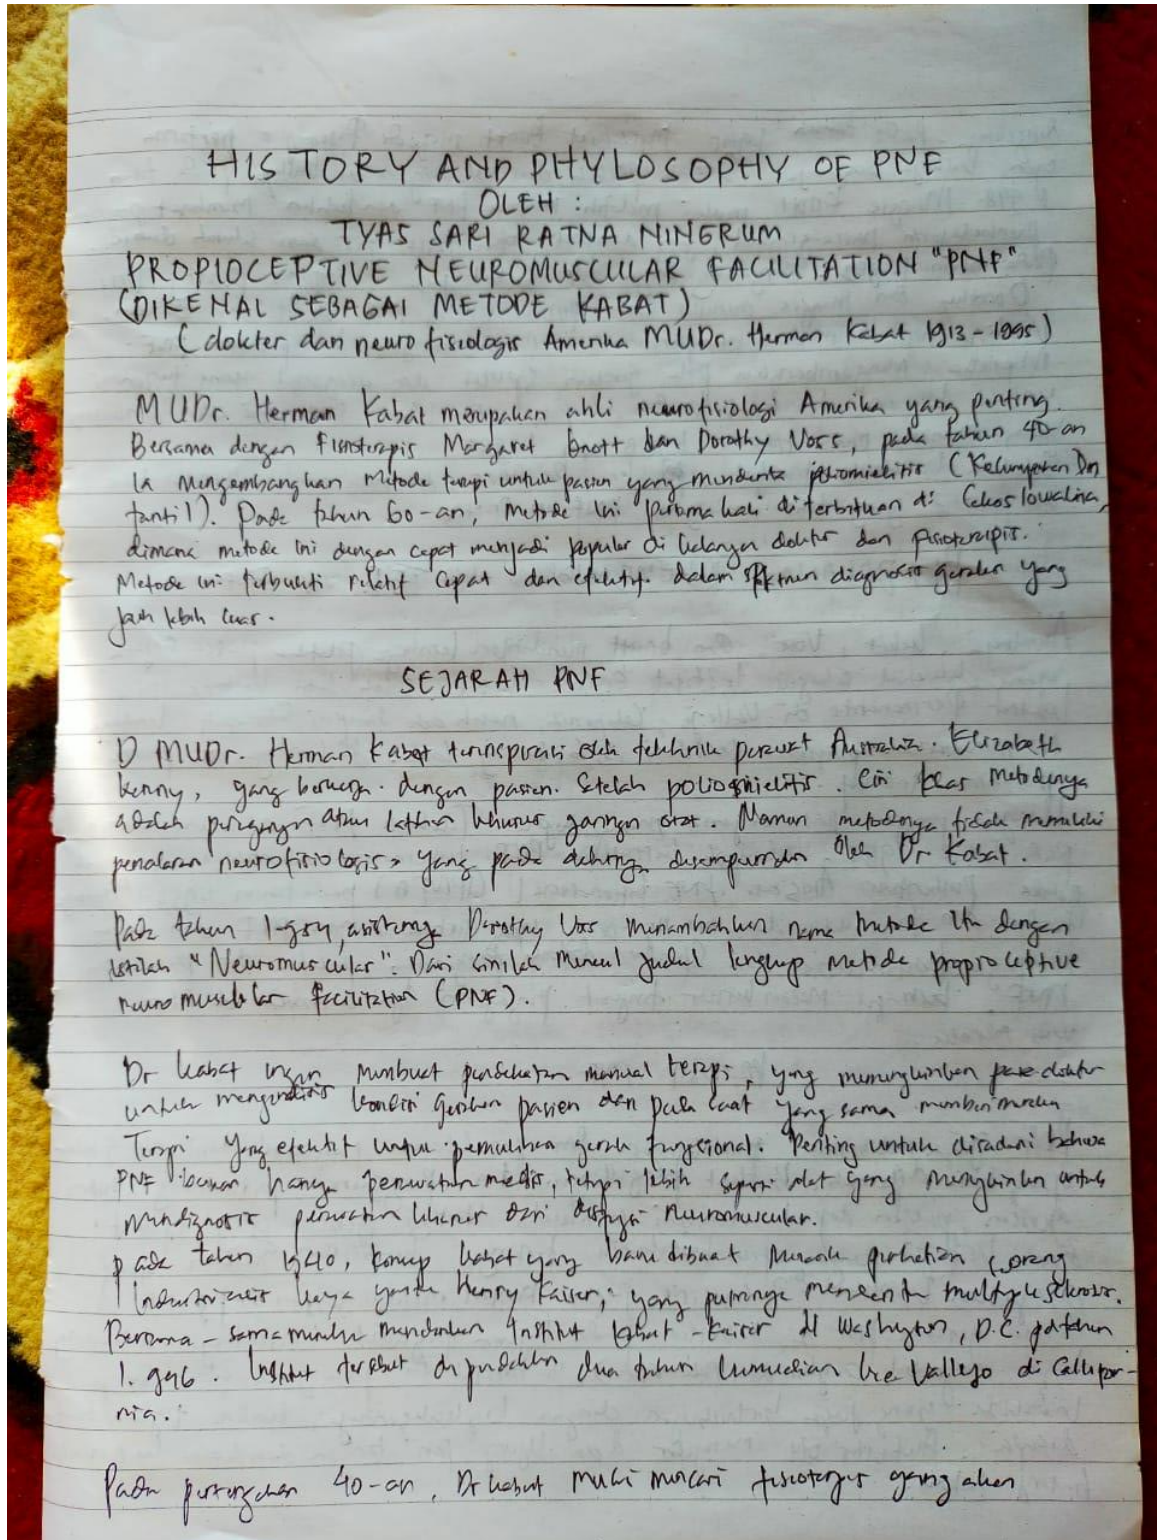 HISTORY AND PHYLOSOPHY OF PNF
OLEH :
TYAS SARI RATNA NINGRUM
PROPIOCEPTIVE NEUROMUSCULAR FACILITATION "PNF"
(DIKENAL SEBAGAI METODE KABAT)
(dokter dan neurofisiologis Amerika MUDr. Herman Kabat 1913 - 1995)
MUDr. Herman Kabat merupakan ahli neurofisiologi Amerika yang penting.
Bersama dengan fisioterapis Margaret knott dan Dorothy Voss, pada tahun 40-an
Ia mengembangkan metode terapi untuk pasien yang menderita poliomielitis (Kelumpuhan In
fantil). Pada tahun 60-an, metode ini pertama kali diterbitkan di Cekoslowakia,
dimana metode ini dengan cepat menjadi popular di kalangan dokter dan fisioterapis.
Metode ini terbukti relatif cepat dan efektif dalam spektrum diagnosis gerakan yang
jauh lebih luas.
SEJARAH PNF
D MUDr. Herman Kabat terinspirasi oleh tekhnik perawat Australia. Elizabeth
kenny, yang bekerja dengan pasien setelah poliomielitis. Ciri khas metodenya
adalah peregangan atau latihan khusus jaringan otot. Namun metodenya tidak memiliki
penalaran neurofisiologis, yang pada akhirnya disempurnakan oleh Dr Kabat.
Pada tahun 1.954, asistennya Dorothy Voss menambahkan nama metode itu dengan
istilah "Neuromuscular". Dari sinilah muncul judul lengkap metode proprioceptive
neuromuscular facilitation (PNF).
Dr kabat ingin membuat pendekatan manual terapi, yang memungkinkan para dokter
untuk kondisi gerakan pasien dan pada saat yang sama memberi mereka
Terapi yang efektif untuk pemulihan gerak fungsional. Penting untuk disadari bahwa
PNF bukan hanya perawatan medis, tetapi lebih seperti alat yang mungkinkan untuk
mendiagnosis perawatan khusus dari neuromuscular.
pada tahun 1940, konsep kabat yang baru dibuat menarik perhatian seorang
Industrialis kaya yaitu Henry Kaiser, yang putranya menderita multiple sklerosis.
Bersama - sama mereka mendirikan Institut kabat - kaiser di Washington, D.C. tahun
1. 946. Institut tersebut dipindahkan dua tahun kemudian ke Vallejo di Califor-
nia.
Pada pertengahan 40-an, Dr kabat mulai mencari fisioterapis yang akan